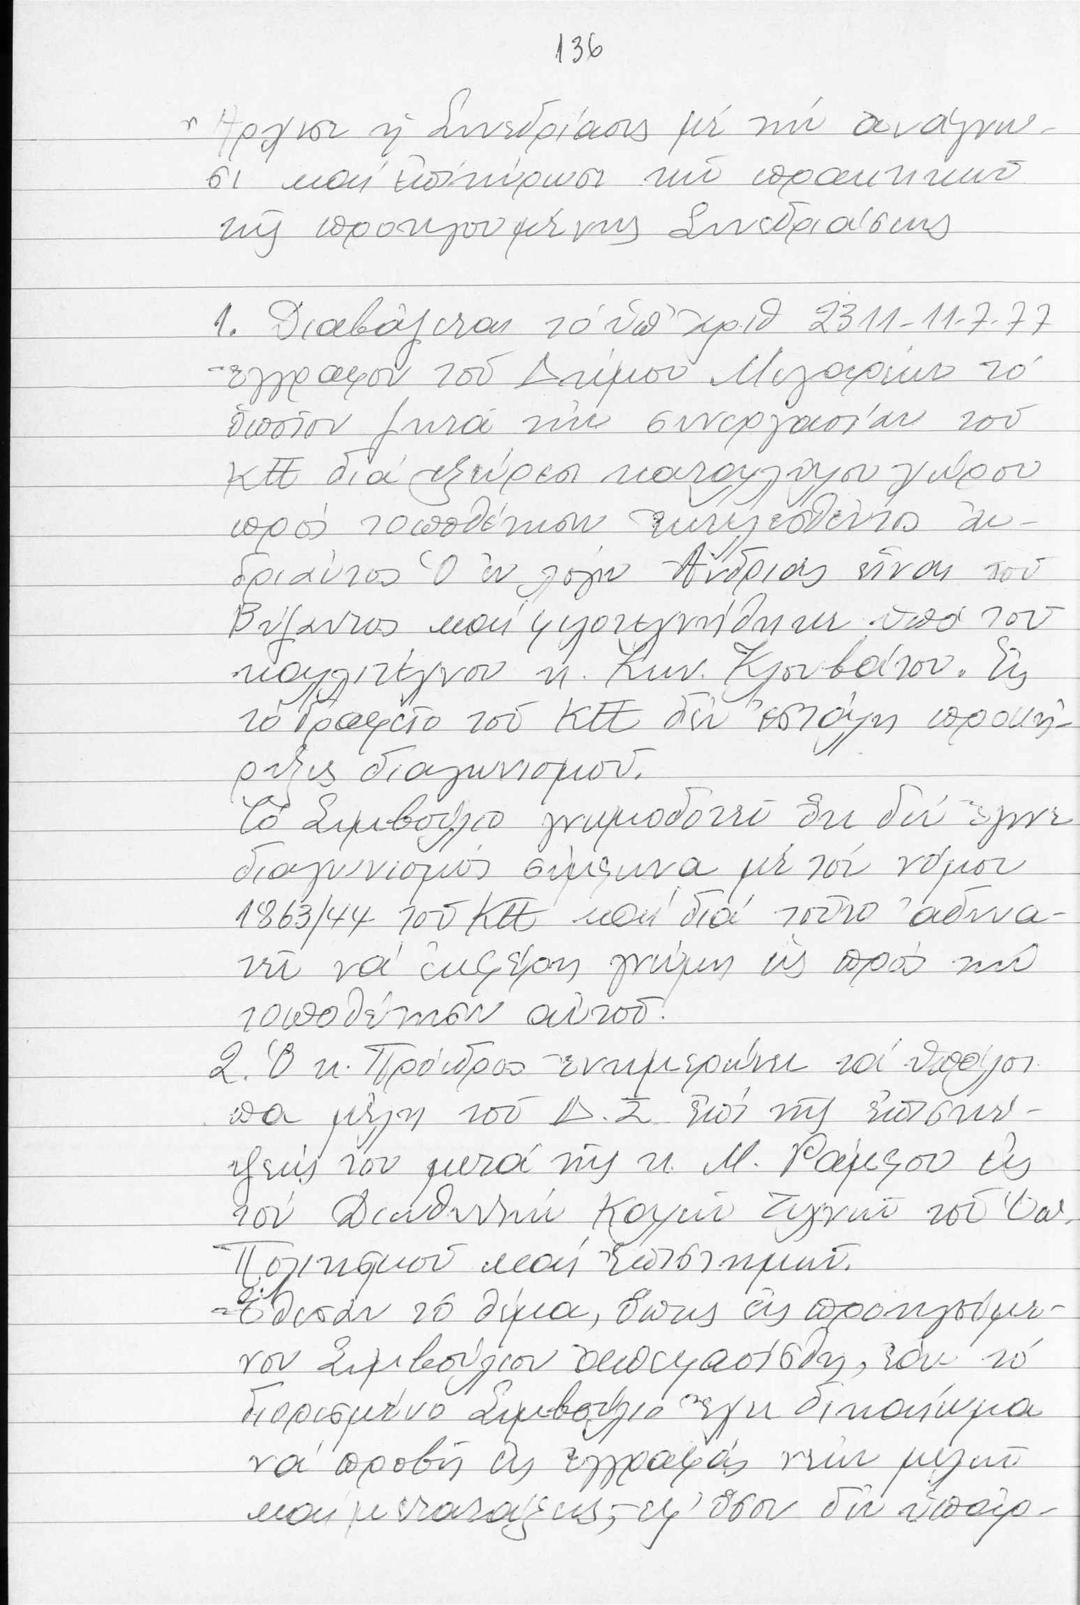 136
Ἄρχισε ἡ Συνεδρίασις μέ τήν ἀνάγνω-
σι καί ἐπικύρωσι τοῦ πρακτικοῦ
τῆς προηγουμένης Συνεδριάσεως
1. Διαβάζεται τό ὑπ' ἀριθ 2311-11-7-77
ἔγγραφον τοῦ Δήμου Μεγαρέων τό
ὁποῖον ζητᾶ τήν συνεργασίαν τοῦ
ΚΤΕ διά ἐξεύρεσι καταλλήλου χώρου
πρός τοποθέτησιν ἐκτελεσθέντος ἀν-
δριάντος Ὁ ἐν λόγῳ Ἀνδριάς εἶναι τοῦ
Βύζαντος καί φιλοτεχνήθηκε ὑπό τοῦ
καλλιτέχνου κ. Κων. Κλουβάτου. Εἰς
τό Γραφεῖο τοῦ ΚΤΕ δέν ἐστάλη προκή-
ρυξις διαγωνισμοῦ.
Τό Συμβούλιο γνωμοδοτεῖ ὅτι δέν ἔγινε
διαγωνισμός σύμφωνα μέ τόν νόμον
1863/44 τοῦ ΚΤΕ καί διά τοῦτο ἀδυνα-
τεῖ νά ἐκφέρῃ γνώμη ὡς πρός τήν
τοποθέτησιν αὐτοῦ.
2. Ὁ κ. Πρόεδρος ἐνημερώνει τά ὑπόλοι
πα μέλη τοῦ Δ.Σ ἐπί τῆς ἐπισκέ-
ψεώς του μετά τῆς κ. Μ. εἰς
τόν Διευθυντήν Καλῶν Τεχνῶν τοῦ Ὑπ.
Πολιτισμοῦ καί Ἐπιστημῶν.
Ἔθεσαν τό θέμα, ὅπως εἰς προηγούμε-
νον Συμβούλιον ἀπεφασίσθη, ἐάν τό
διορισμένο Συμβούλιο ἔχει δικαίωμα
νά προβῇ εἰς ἐγγραφάς νέων μελῶν
καί μετατάξεις, ἐφ' ὅσον δέν ὑπάρ-